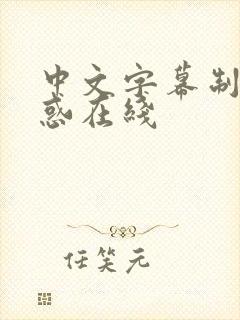 中文字幕制
惑在线
任笑元